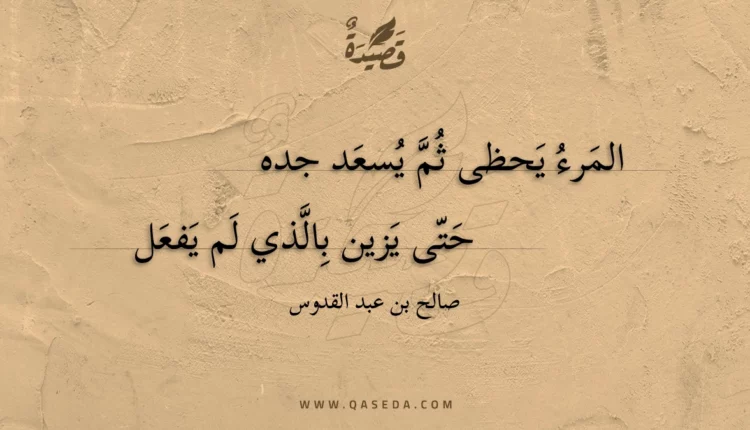 قَصِيدَةٌ
المَرءُ يَحظى ثُمَّ يُسعَد جده
حَتّى يَزين بِالَّذي لَم يَفعَل
صالح بن عبد القدوس
WWW.QASEDA.COM